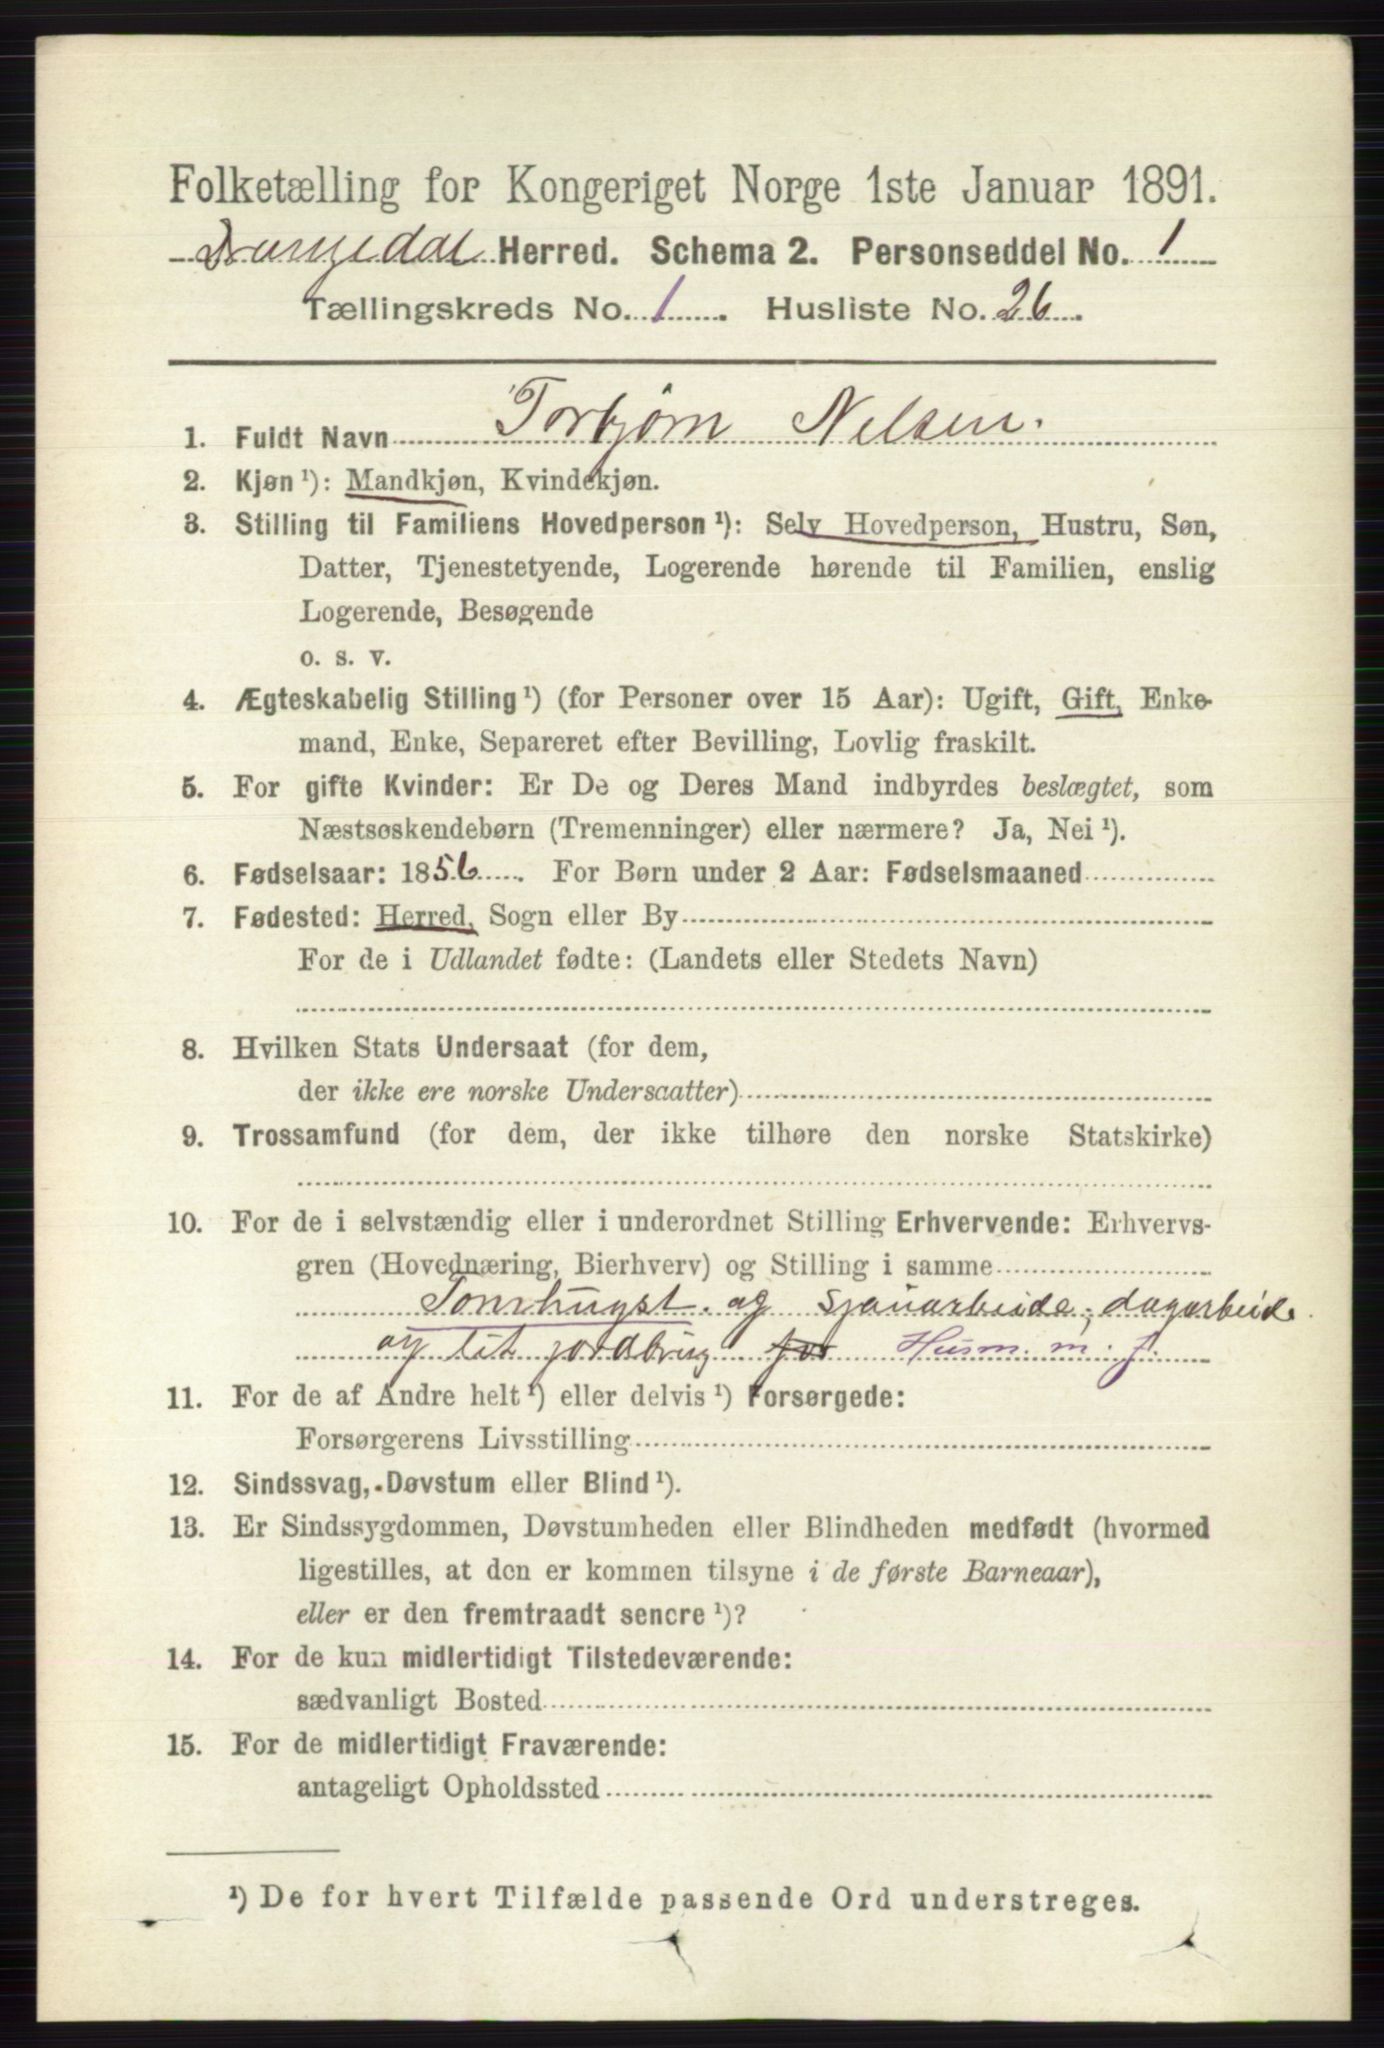 Folketælling for Kongeriget Norge 1ste Januar 1891.
Drangedal Herred. Schema 2. Personseddel No. 1
Tællingskreds No. 1. Husliste No. 26.
1. Fuldt Navn Torbjørn Nelsen.
2. Kjøn ¹): Mandkjøn, Kvindekjøn.
3. Stilling til Familiens Hovedperson ¹): Selv Hovedperson, Hustru, Søn,
Datter, Tjenestetyende, Logerende hørende til Familien, enslig
Logerende, Besøgende
o. s. v.
4. Ægteskabelig Stilling ¹) (for Personer over 15 Aar): Ugift, Gift, Enke-
mand, Enke, Separeret efter Bevilling, Lovlig fraskilt.
5. For gifte Kvinder: Er De og Deres Mand indbyrdes beslægtet, som
Næstsøskendebørn (Tremenninger) eller nærmere? Ja, Nei ¹).
6. Fødselsaar: 1856. For Børn under 2 Aar: Fødselsmaaned
7. Fødested: Herred, Sogn eller By
For de i Udlandet fødte: (Landets eller Stedets Navn)
8. Hvilken Stats Undersaat (for dem,
der ikke ere norske Undersaatter)
9. Trossamfund (for dem, der ikke tilhøre den norske Statskirke)
10. For de i selvstændig eller i underordnet Stilling Erhvervende: Erhvervs-
gren (Hovednæring, Bierhverv) og Stilling i samme
og dagarbeide
og lit jordbrug for Husm. m. j.
11. For de af Andre helt ¹) eller delvis ¹) Forsørgede:
Forsørgerens Livsstilling
12. Sindssvag, Døvstum eller Blind ¹).
13. Er Sindssygdommen, Døvstumheden eller Blindheden medfødt (hvormed
ligestilles, at den er kommen tilsyne i de første Barneaar),
eller er den fremtraadt senere ¹)?
14. For de kun midlertidigt Tilstedeværende:
sædvanligt Bosted
15. For de midlertidigt Fraværende:
antageligt Opholdssted
¹) De for hvert Tilfælde passende Ord understreges.